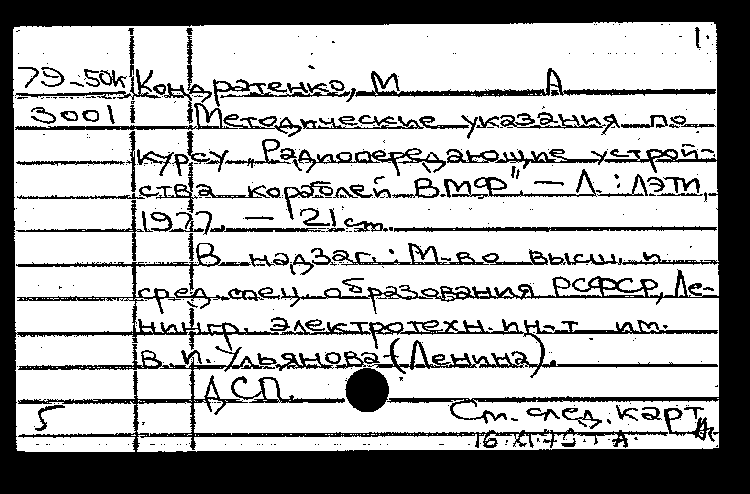 1.
79-50к Кондратенко, М А
3001 Методические указания по
курсу „Радиопередающие устрой-
ства кораблей ВМФ". — Л.: ЛЭТИ,
1977. — 21 ст.
В надзаг.: М-во высш. и
сред. спец. образования РСФСР, Ле-
нингр. электротехн. ин-т им.
В. И. Ульянова (Ленина).
ДСП.
5 См. след. карт.
16.XI.79. А.